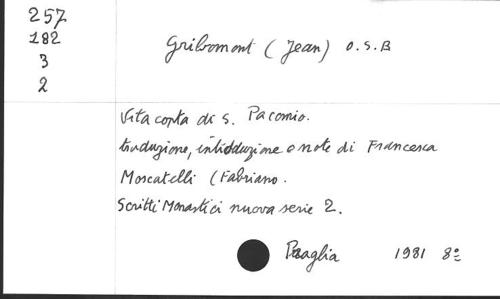 257
182
3
2
Gribomont (Jean) O.S.B
Vita copta di S. Pacomio.
traduzione, introduzione e note di Francesca
Moscatelli (Fabriano.
Scritti Monastici nuova serie 2.
Praglia 1981 8º